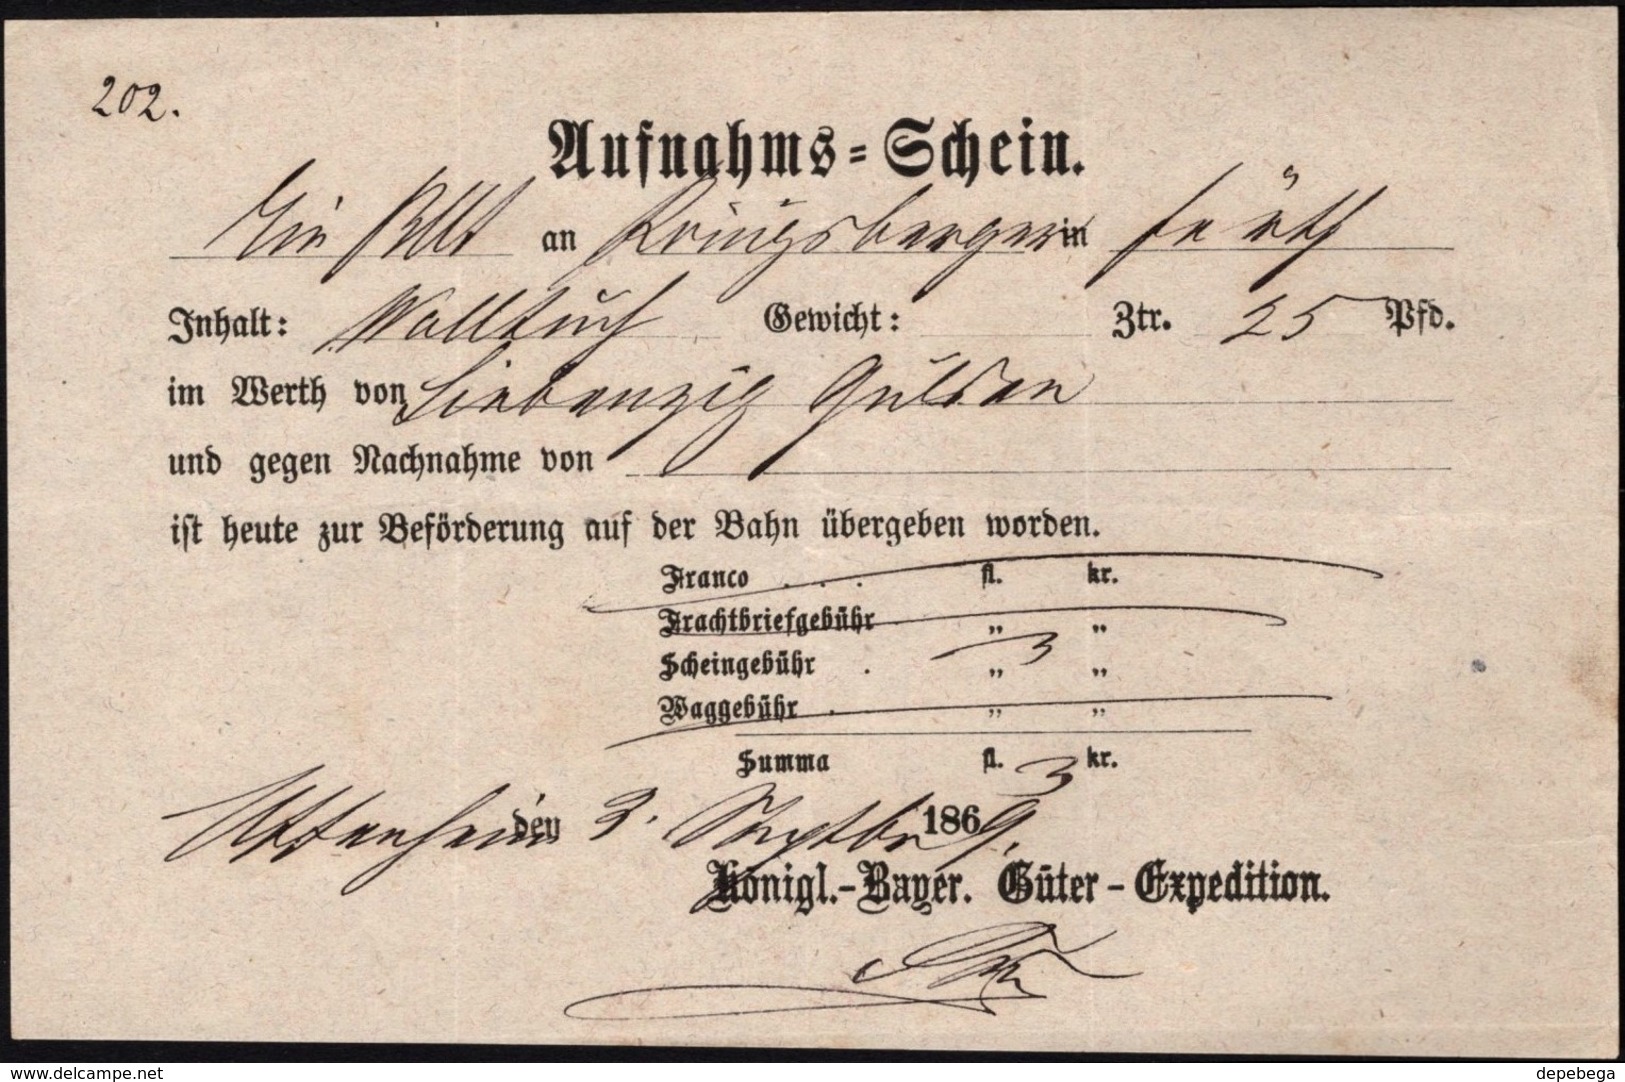 202.
Aufnahms-Schein.
Ein Collt an Königsberger in Fürth
Inhalt: Wolltuch Gewicht: Ztr. 25 Pfd.
im Werth von Siebenzig Gulden
und gegen Nachnahme von
ist heute zur Beförderung auf der Bahn übergeben worden.
Franco . . . fl. kr.
Frachtbriefgebühr „ „
Scheingebühr . „ 3 „
Waggebühr . „ „
Summa fl. 3 kr.
Uffenheim den 3. Septbr 1869.
Königl.-Bayer. Güter-Expedition.
delcampe.net
depebega